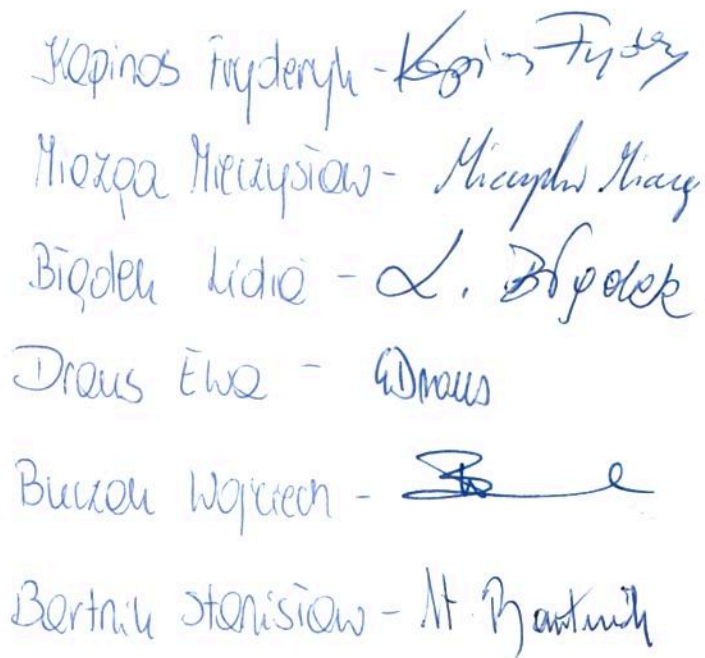 Kapinos Fryderyk - Kapinos Fryder
Miazga Mieczysław - Mieczysław Miazga
Błądek Lidia - L. Błądek
Draus Ewa - EDraus
Buczak Wojciech -
Bartnik Stanisław - St. Bartnik